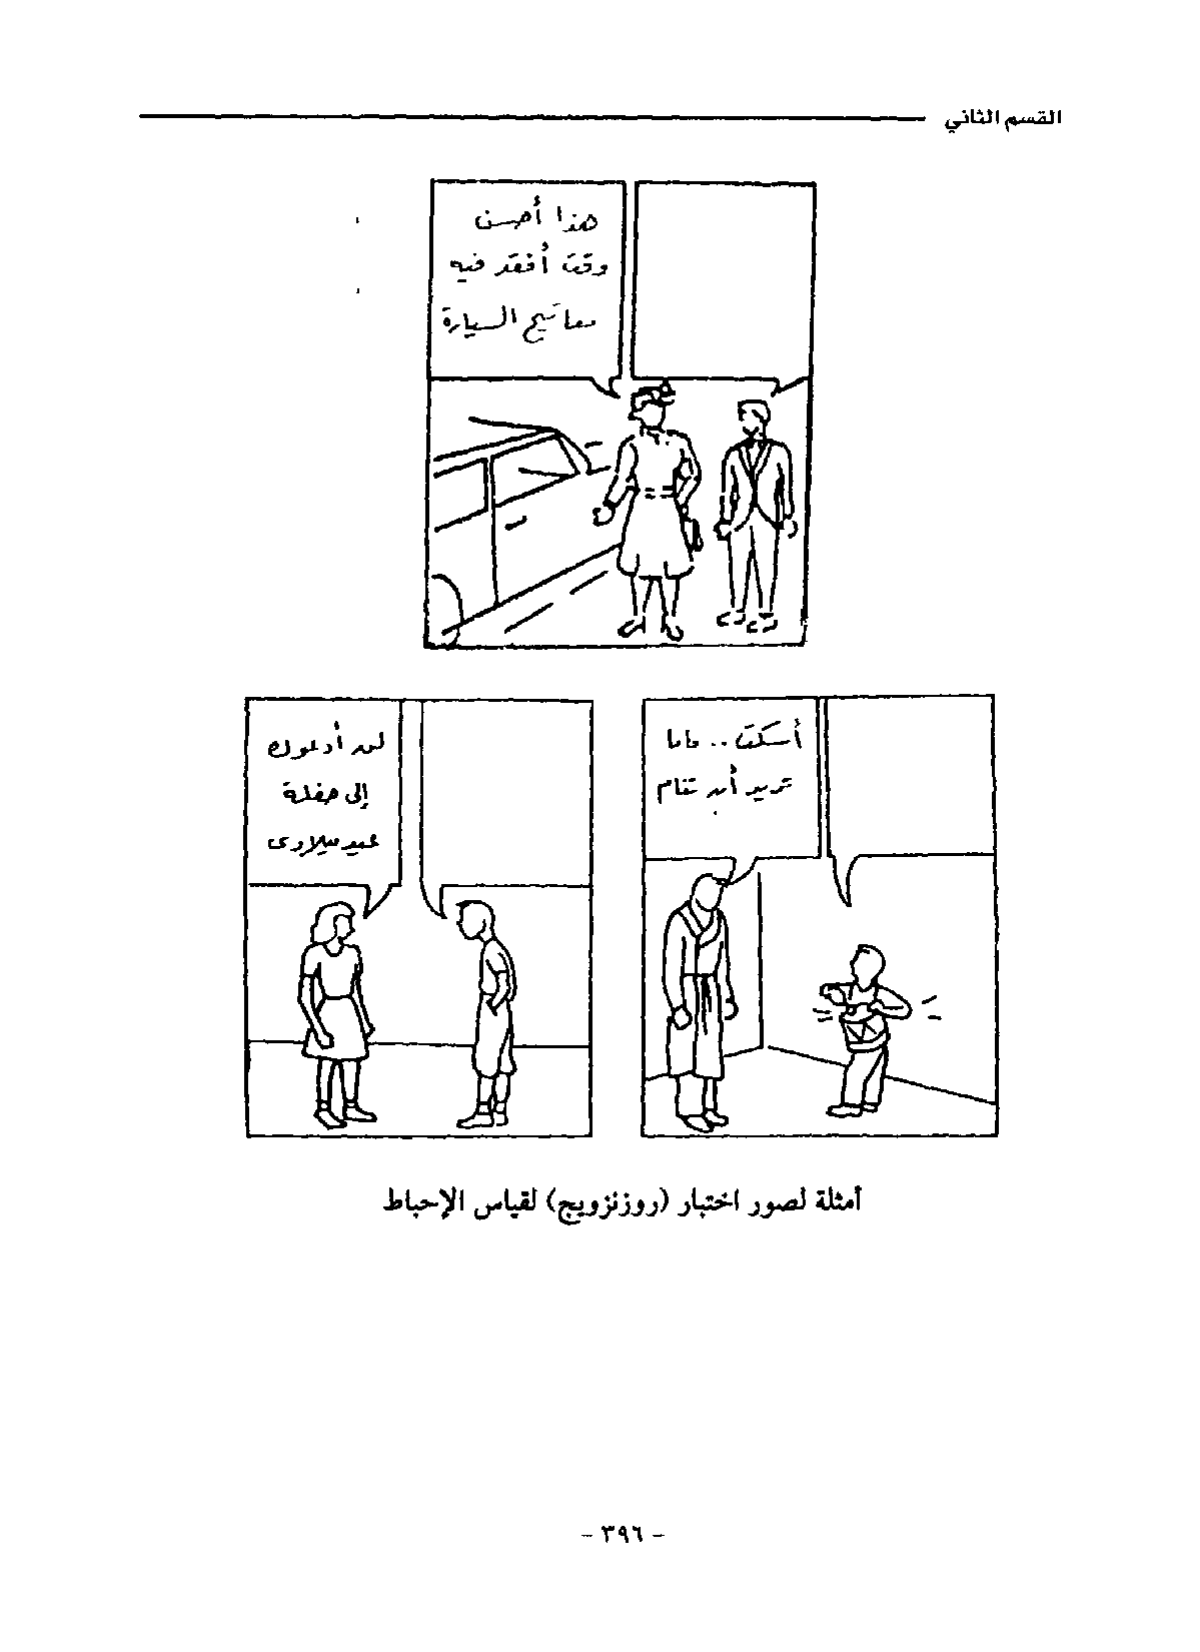 القسم الثاني
هذا أحسن
وقت أفقد فيه
مفاتيح السيارة
أسكت .. ماما
تريد أن تنام
لن أدعوك
إلى حفلة
عيد ميلادى
أمثلة لصور اختبار (روزنزويج) لقياس الإحباط
- ٣٩٦ -